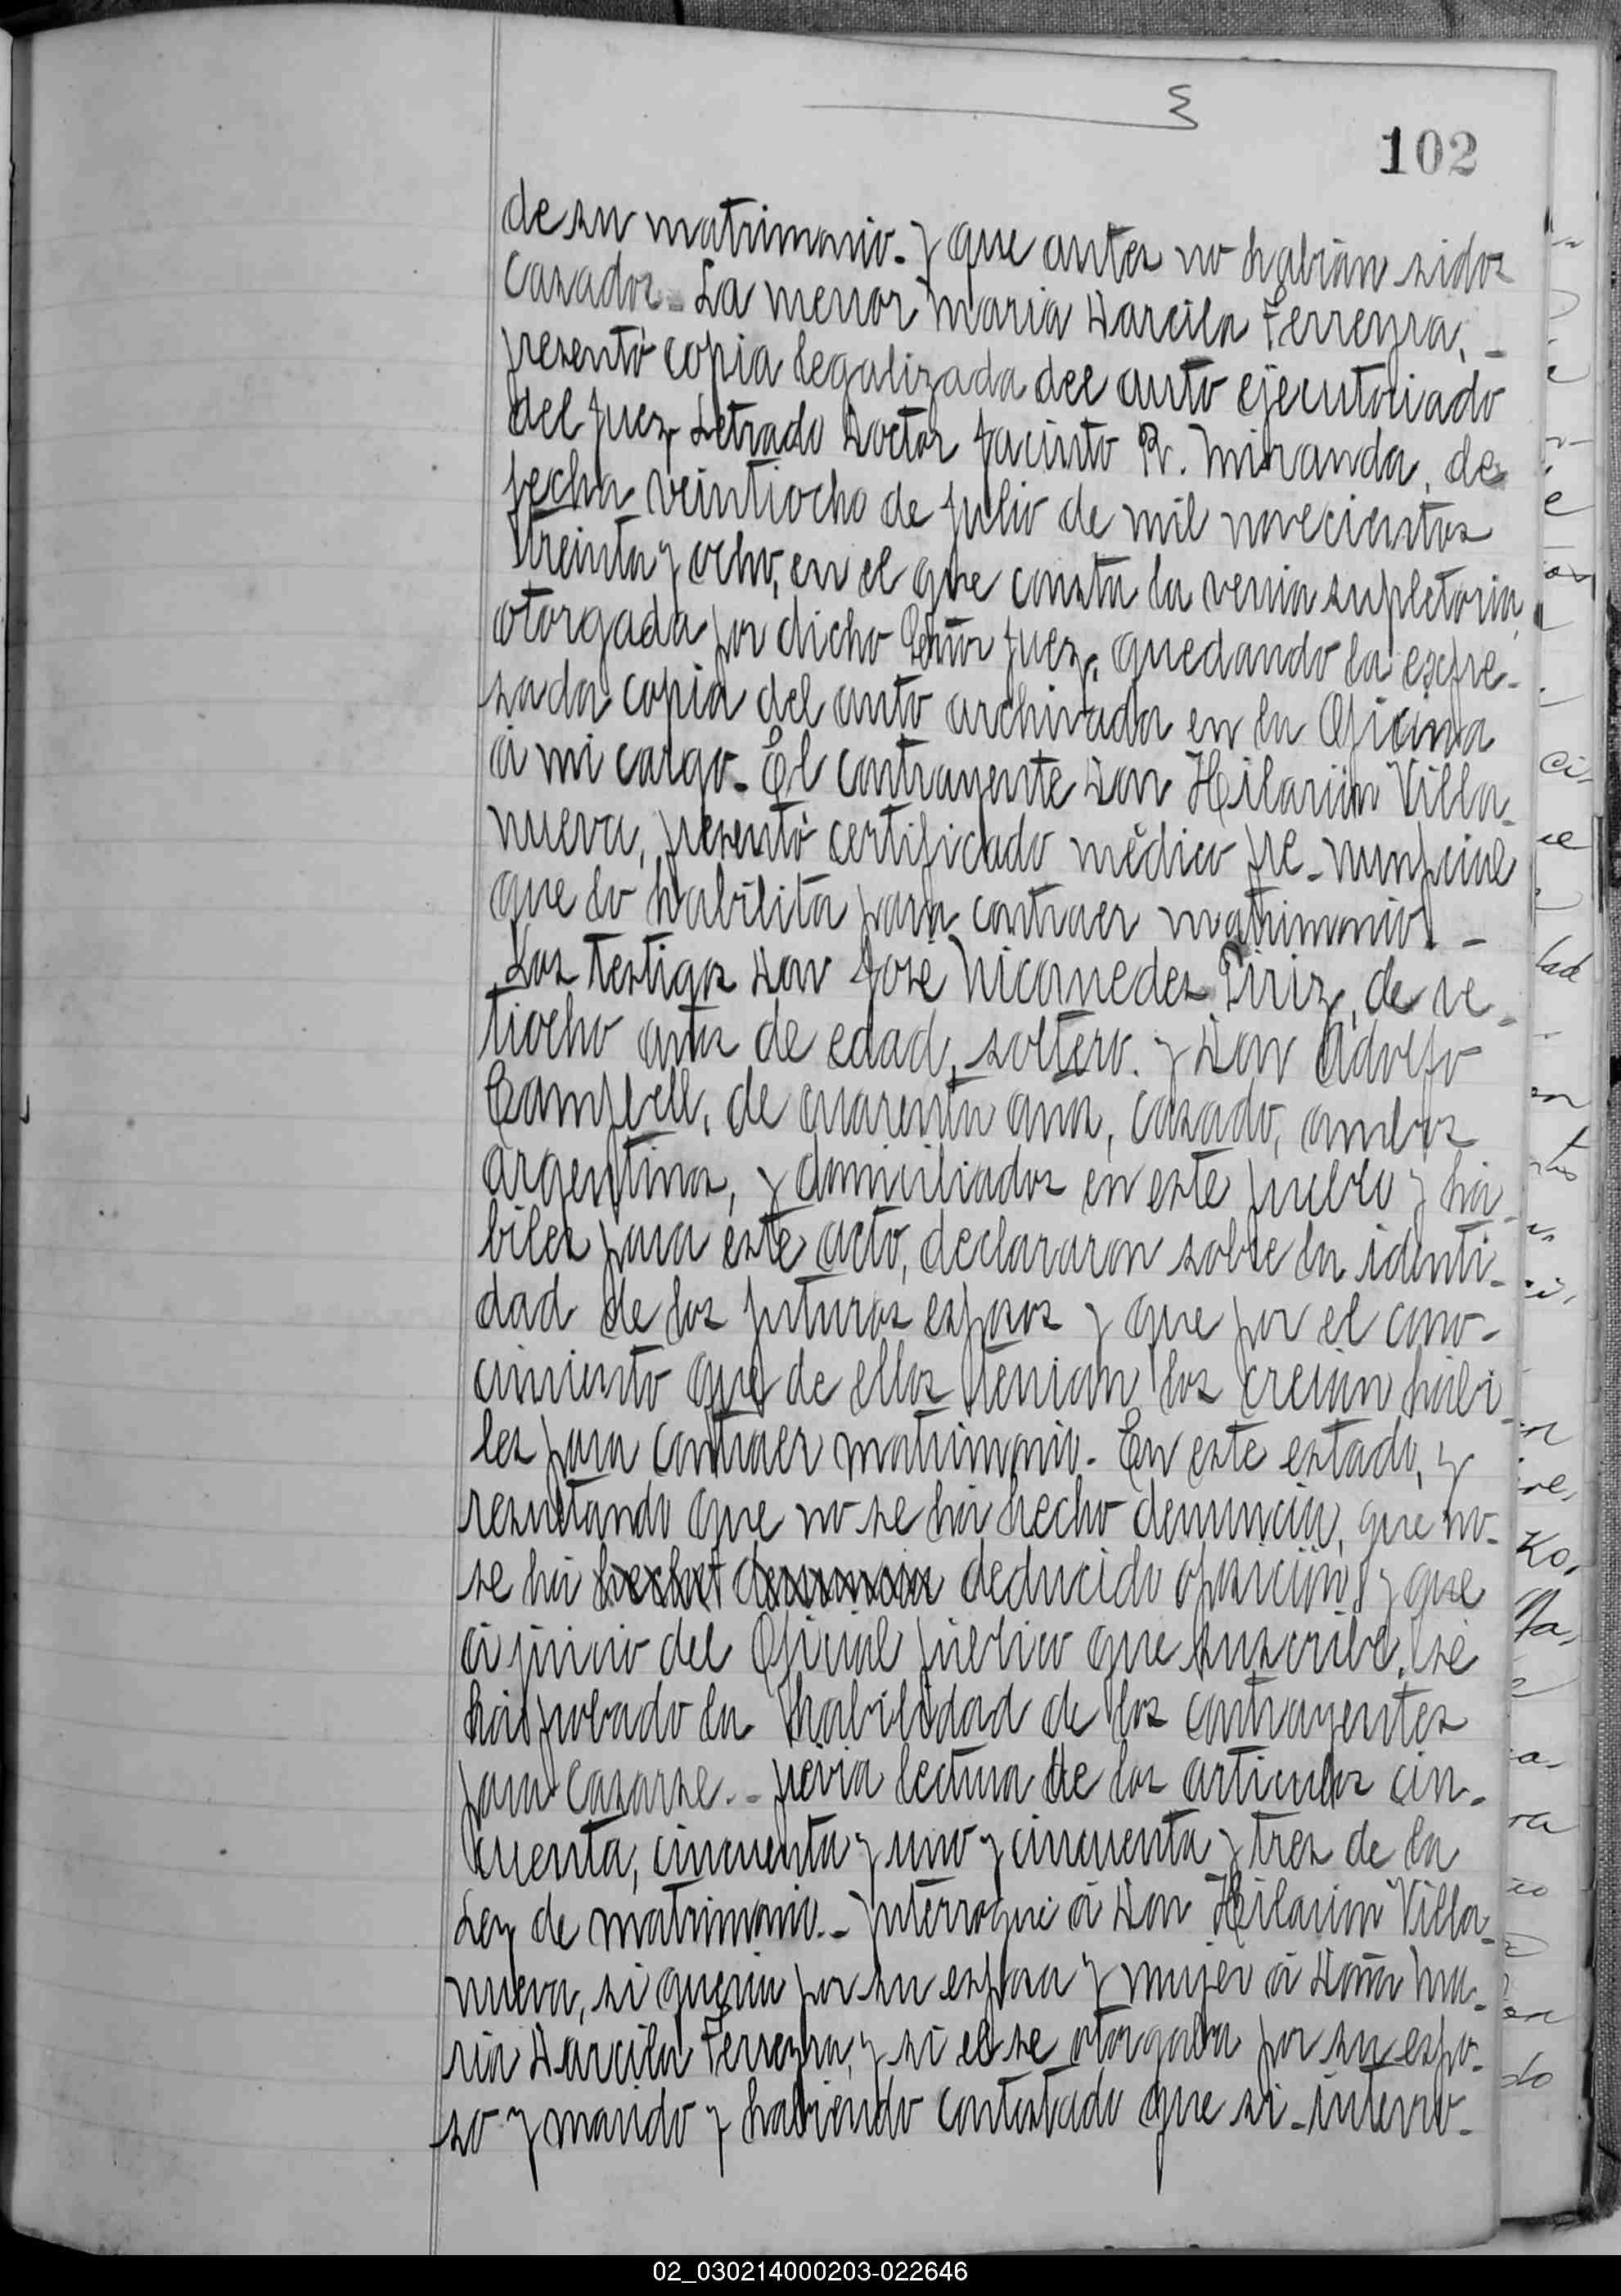 102
de su matrimonio. y que antes no habian sidos
casados. La menor Maria Darcila Ferreyra, -
presentó copia legalizada del auto ejecutoriado
del Juez Letrado Doctor Jacinto R. Miranda, de
fecha veintiocho de Julio de mil novecientos
treinta y ocho, en el que consta la venia supletoria
otorgada por dicho Señor Juez, quedando la expre-
sada copia del auto archivada en la Oficina
á mi cargo. El contrayente Don Hilarión Villa-
nueva, presentó certificado médico pre-nunpcial
que lo habilita para contraer matrimonio. -
Los testigos Don José Nicomedes Piriz, de ve-
tiocho años de edad, soltero. y Don Adolfo
Campbell, de cuarenta años, casado, ambos
argentinos, y domiciliados en este pueblo y há-
biles para este acto, declararon sobre la identi-
dad de los futuros esposos y que por el cono-
cimiento que de ellos tenian los creian hábi-
les para contraer matrimonio. En este estado, y
resultando que no se há hecho denuncia, que no-
se há hecho denuncia deducido oposición y que
á juicio del Oficial público que suscribe, se
há probado la habilidad de los contrayentes
para casarse.- previa lectura de los articulos cin-
cuenta, cincuenta y uno y cincuenta y tres de la
Ley de matrimonio.- Interrogué á Don Hilarion Villa-
nueva, si queria por su esposa y mujer á Doña Ma-
ria Darcila Ferreyra, y si el se otorgaba por su espo-
so y marido y habiendo contestado que si - interro-
02_030214000203-022646